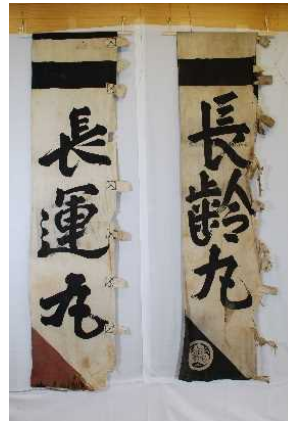 長齢丸
長運丸